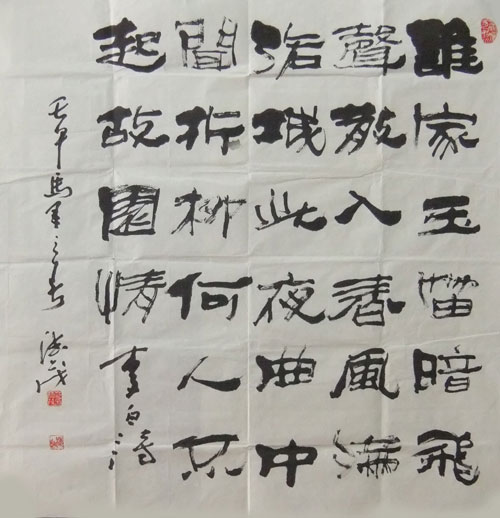 誰家玉笛暗飛
聲散入春風滿
洛城此夜曲中
聞折柳何人不
起故園情 李白詩
壬午馬年之春